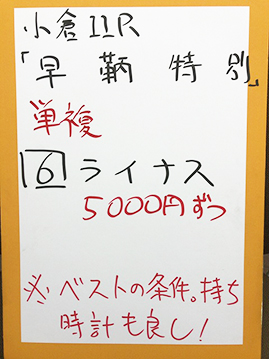 小倉11R
「早鞆特別」
単複
6 ライナス
5000円ずつ
※ベストの条件。持ち
時計も良し!